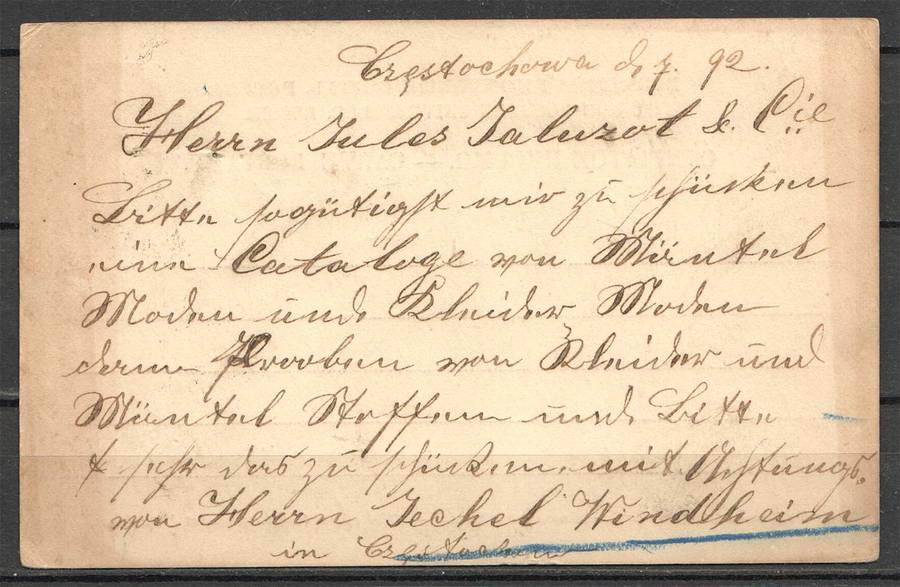 Częstochowa d. 7. 92.
Herrn Jules Jaluzot & Cie
Bitte sogütigst mir zu schücken
eine Cataloge von Mäntel
Moden und Kleider Moden
dann Prooben von Kleider und
Mäntel Stoffen und Bitte
sehr das zu schücken mit Achtungs.
von Herrn Jechel Windheim
in